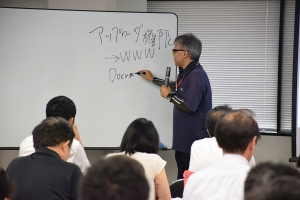 アップローダ権限
→WWW
Docum